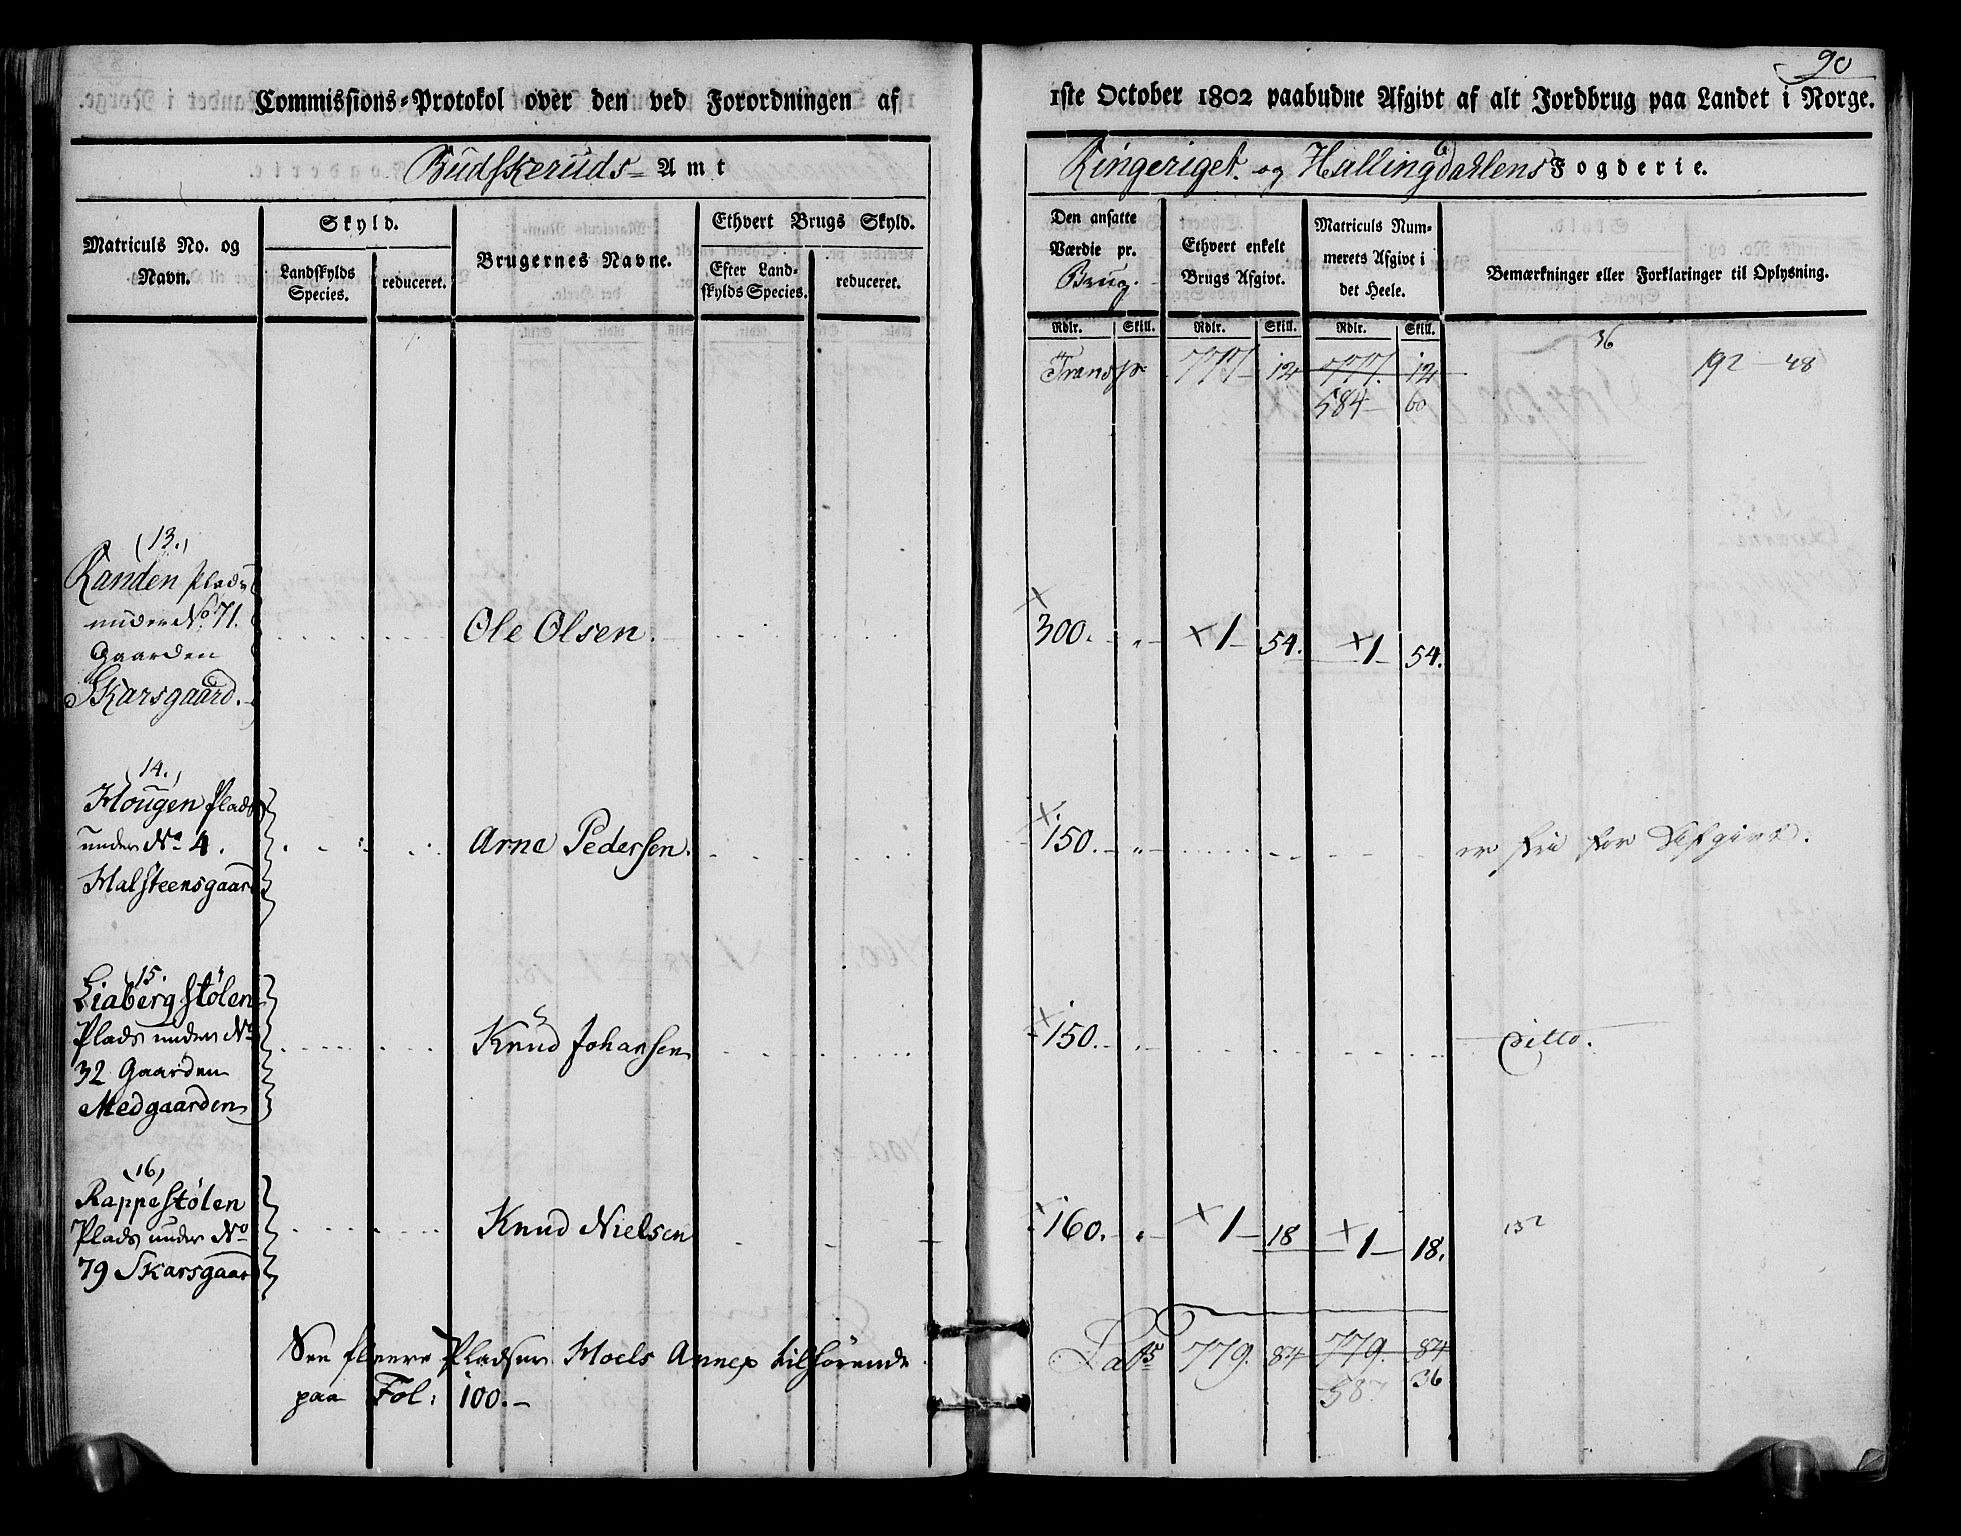 90
Commissions-Protokol over den ved Forordningen af 1ste October 1802 paabudne Afgivt af alt Jordbrug paa Landet i Norge.
Budskeruds Amt Ringeriget og Hallingdahlens Fogderie.
Matriculs No. og Navn.
Skyld.
Landskylds Species.
reduceret.
Brugernes Navne.
Ethvert Brugs Skyld.
Efter Landskylds Species.
reduceret.
Den ansatte Værdie pr. Brug.
Ethvert enkelt Brugs Afgivt.
Matriculs Nummerets Afgivt i det Heele.
Bemærkninger eller Forklaringer til Oplysning.
Rdlr. Skill. Rdlr. Skill. Rdlr. Skill.
36
Transp 777 12 777. 12 192 - 48
584 - 60
(13.)
Randen Plads
under No. 71. Ole Olsen. × 300. - „ - × 1 - 54. × 1 - 54.
Gaarden
Skarsgaard.
(14.)
Hougen Plads
under No 4. Arne Pedersen. × 150. - „ - er fri for Afgivt.
Halsteensgaard
15.
Liabergstølen
Plads under No Knud Johansen × 150. - „ - Ditto.
32 Gaarden
Medgaarden
(16)
Rappestølen
Plads under No Knud Nielsen × 160. - „ - × 1 - 18 × 1 - 18. 132
79 Skarsgaard
See fleere Pladser Hoels Annex tilhørende Lats 779. 84 779. 84
paa Fol: 100. - 587 36